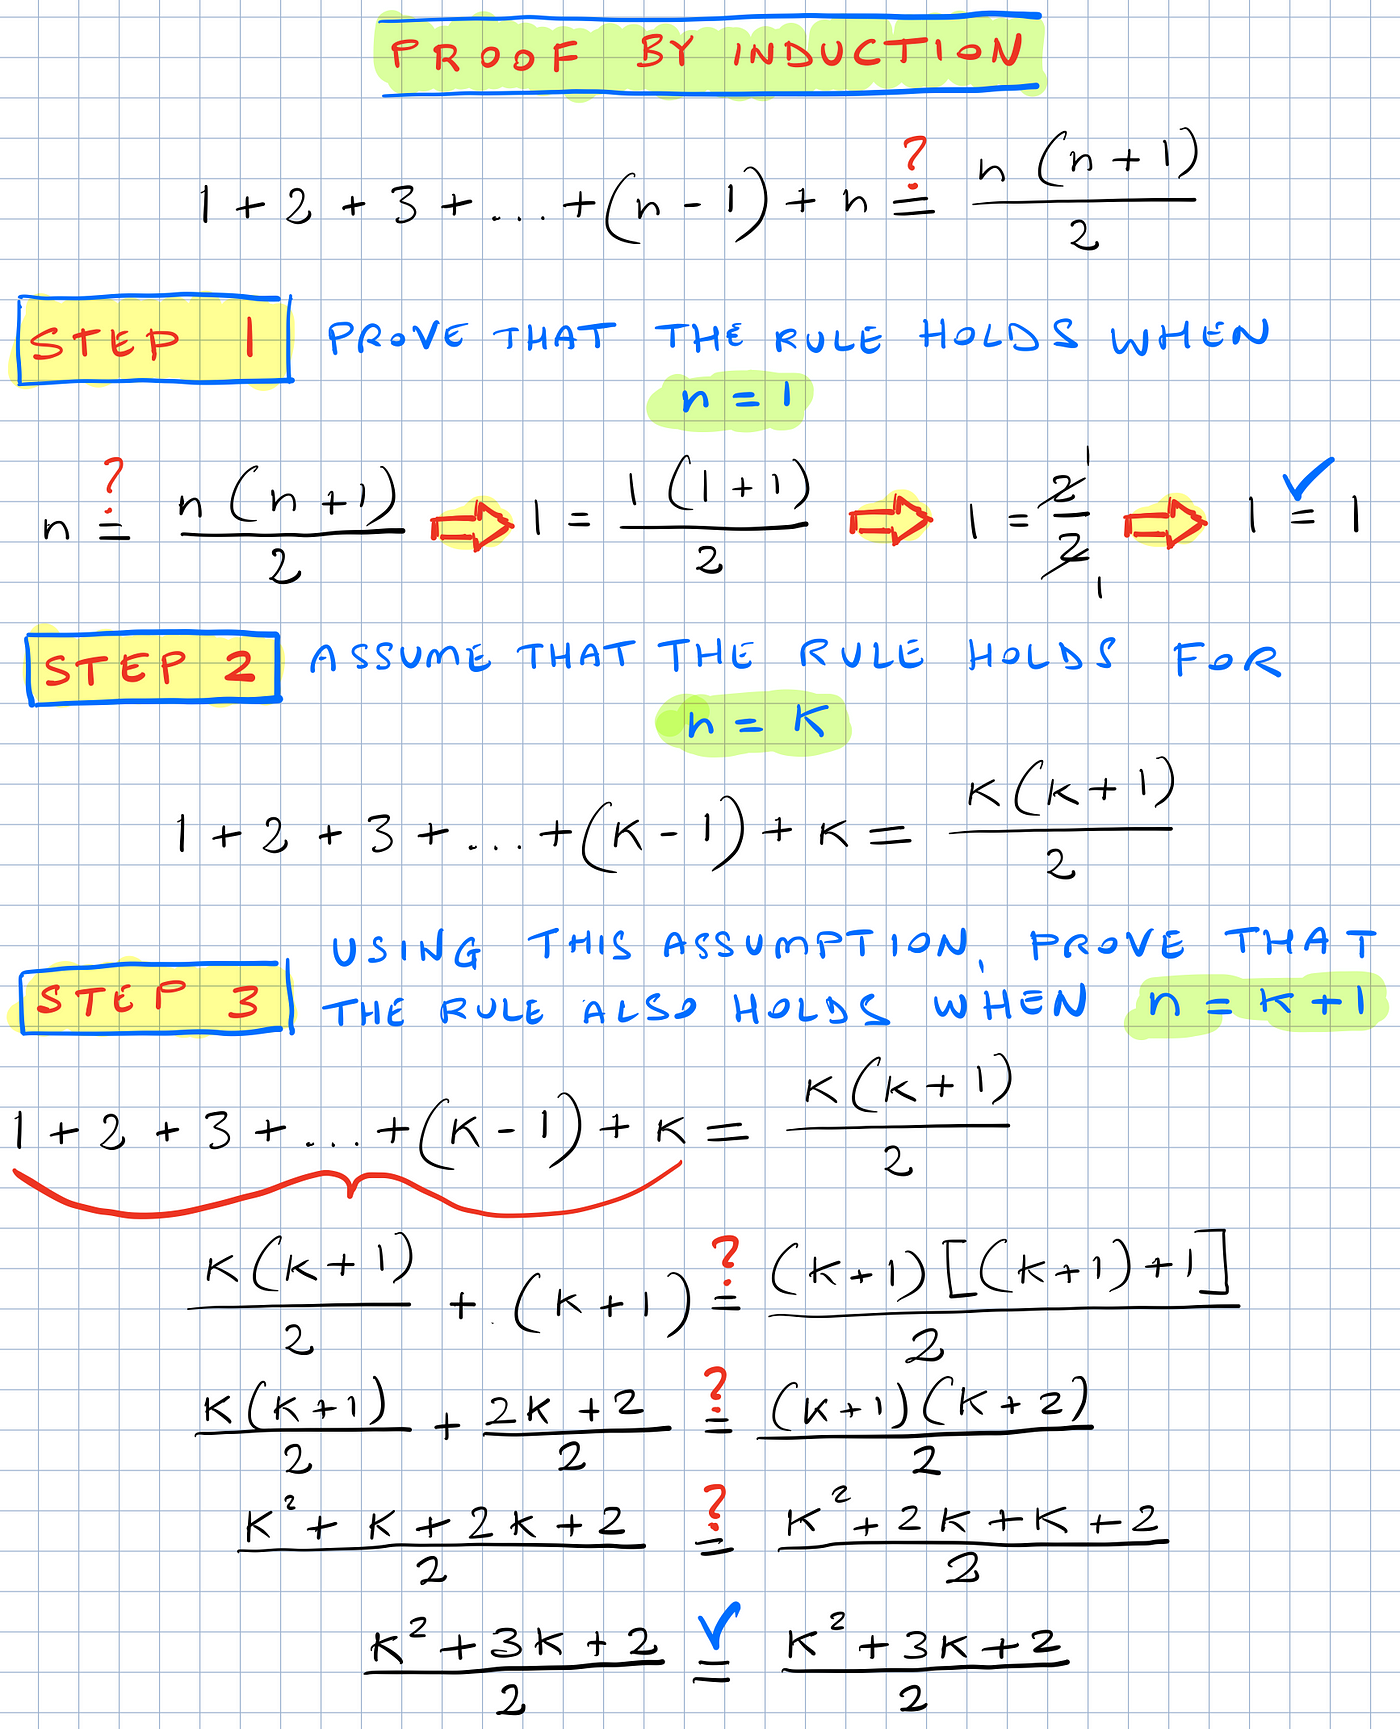 PROOF BY INDUCTION
1 + 2 + 3 + ... + (n - 1) + n ≟ n (n + 1) / 2
STEP 1 PROVE THAT THE RULE HOLDS WHEN
n = 1
n ≟ n (n + 1) / 2 ⇨ 1 = 1 (1 + 1) / 2 ⇨ 1 = 2 1 / 2 1 ⇨ 1 = 1 ✓
STEP 2 ASSUME THAT THE RULE HOLDS FOR
n = K
1 + 2 + 3 + ... + (K - 1) + K = K (K + 1) / 2
STEP 3 USING THIS ASSUMPTION, PROVE THAT
THE RULE ALSO HOLDS WHEN n = K + 1
1 + 2 + 3 + ... + (K - 1) + K = K (K + 1) / 2
K (K + 1) / 2 + (K + 1) ≟ (K + 1) [(K + 1) + 1] / 2
K (K + 1) / 2 + 2K + 2 / 2 ≟ (K + 1) (K + 2) / 2
K² + K + 2K + 2 / 2 ≟ K² + 2K + K + 2 / 2
K² + 3K + 2 / 2 = ✓ K² + 3K + 2 / 2